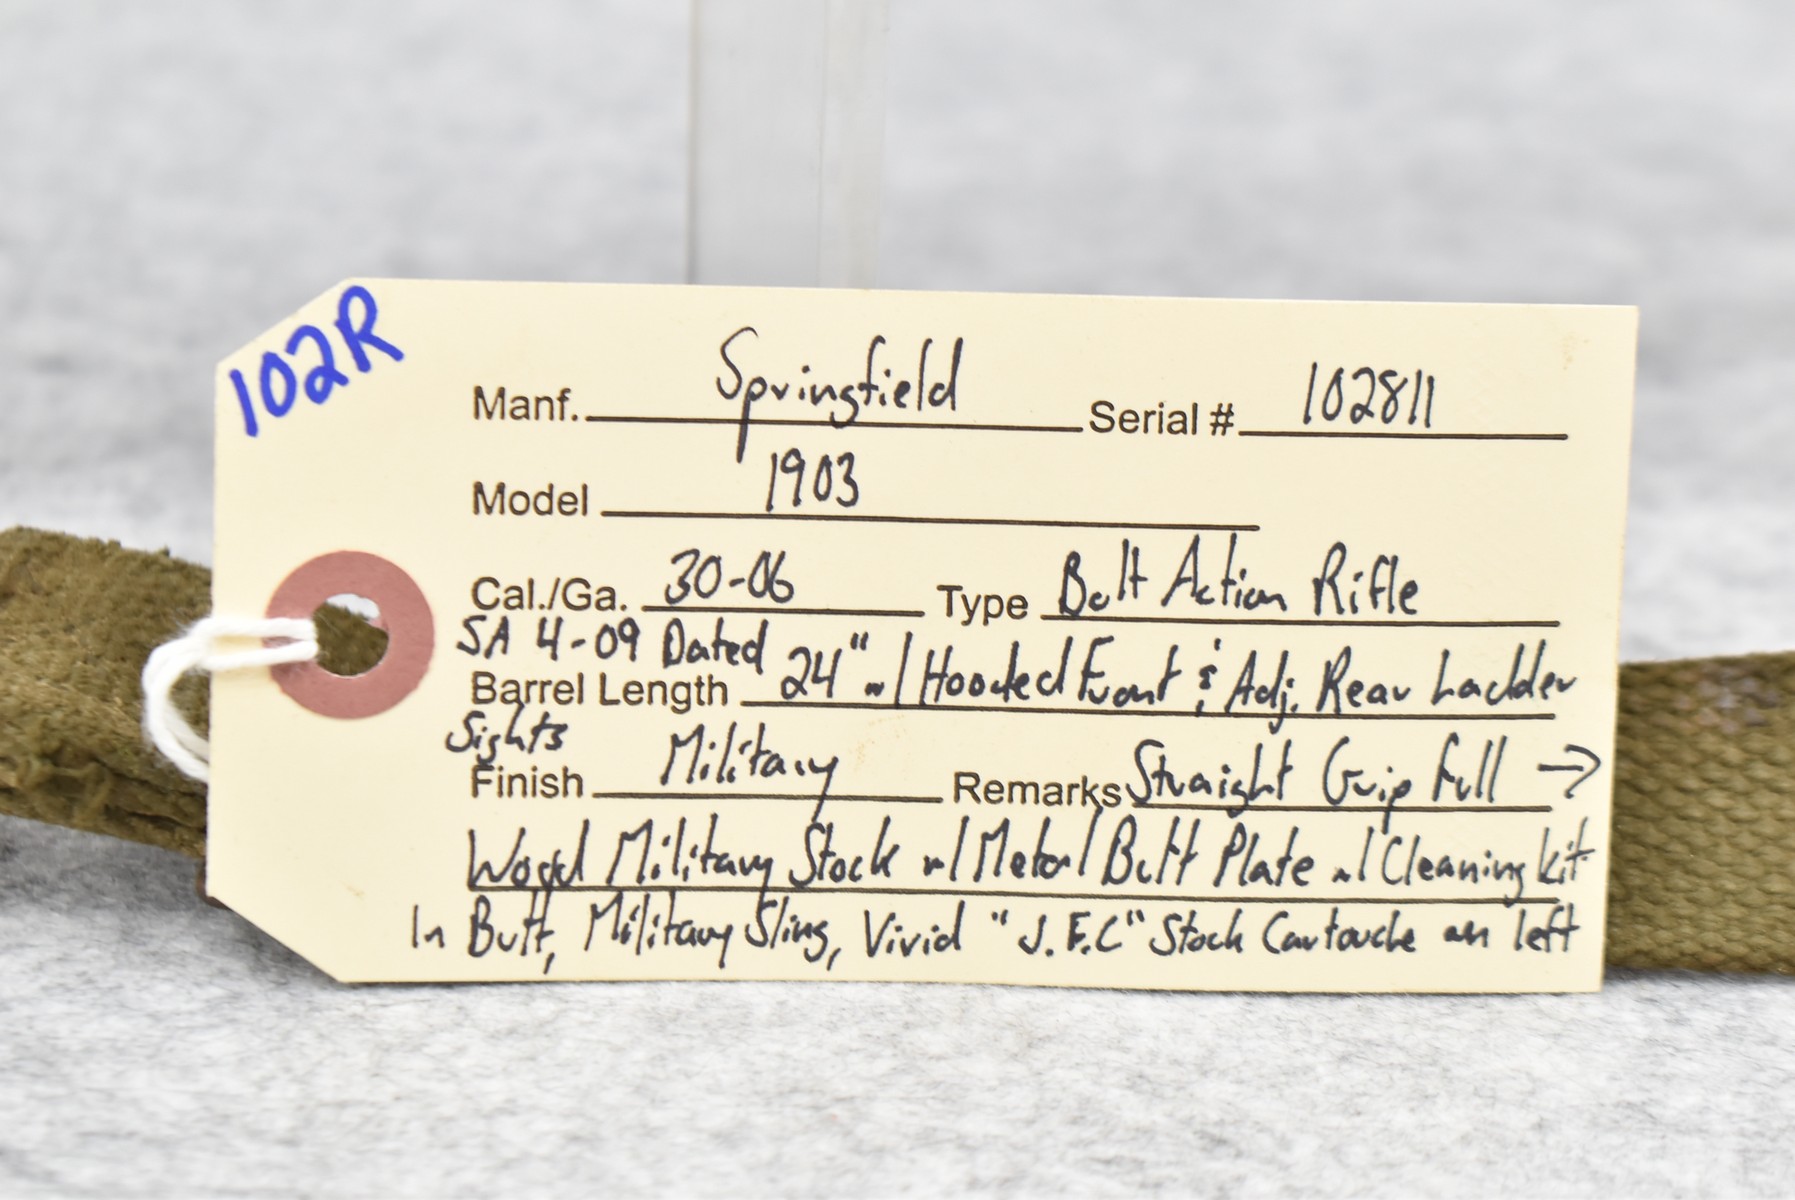 102R
Manf. Springfield Serial # 102811
Model 1903
Cal./Ga. 30-06 Type Bolt Action Rifle
SA 4-09 Dated
Barrel Length 24" w/ Hooded Front & Adj. Rear Ladder
Sights
Finish Military Remarks Straight Grip Full →
Wood Military Stock w/ Metal Butt Plate w/ Cleaning kit
In Butt, Military Sling, Vivid "J.F.C" Stock Cartouche on left